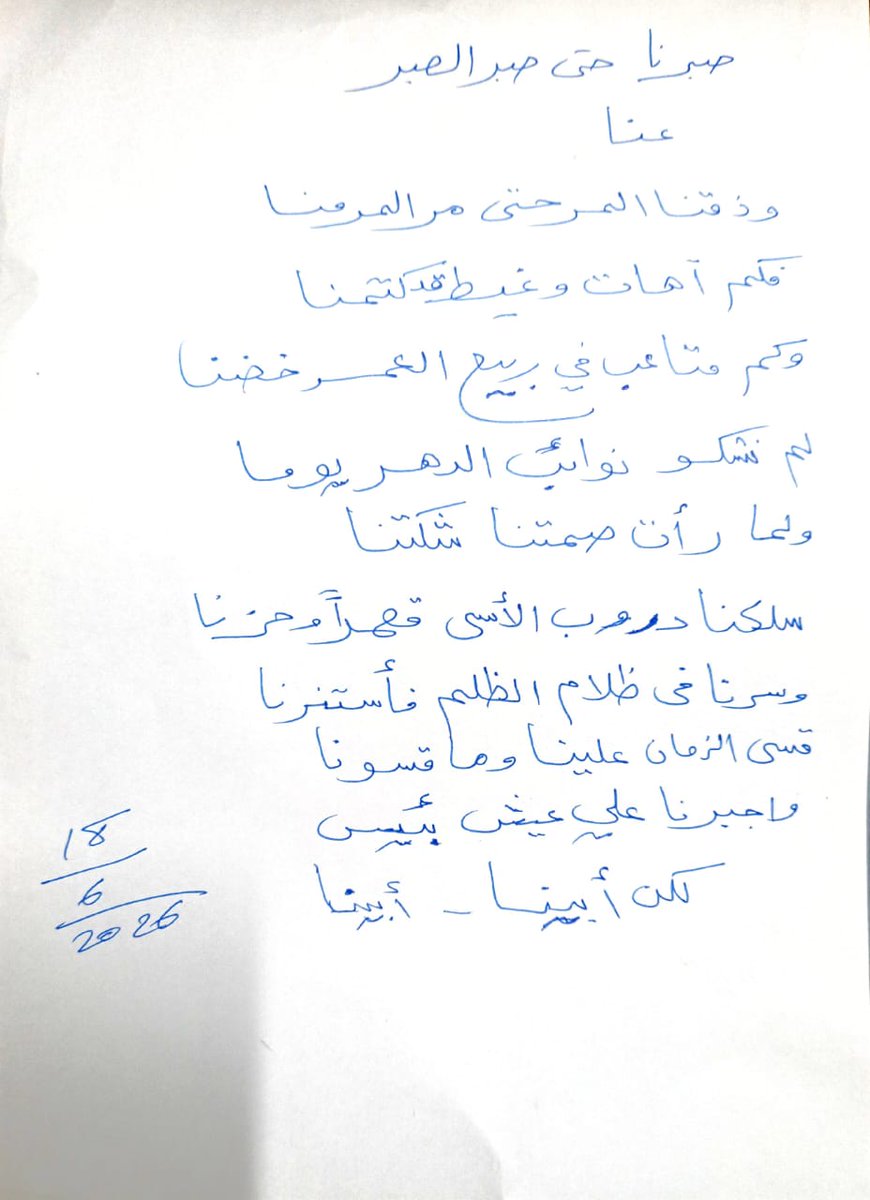 صبرنا حتى صبر الصبر
عنا
وذقنا المر حتى مر المر منا
فكم آهات وغيط قد كتمنا
وكم متاعب في ربيع العمر خضنا
لم نشكو نوائب الدهر يوما
ولما رأت صمتنا شكتنا
سلكنا دروب الأسى قهراً وحزنا
وسرنا في ظلام الظلم فأستنرنا
قسى الزمان علينا وما قسونا
واجبرنا علي عيش بئيس
لكن أبينا - أبينا
18
6
2026